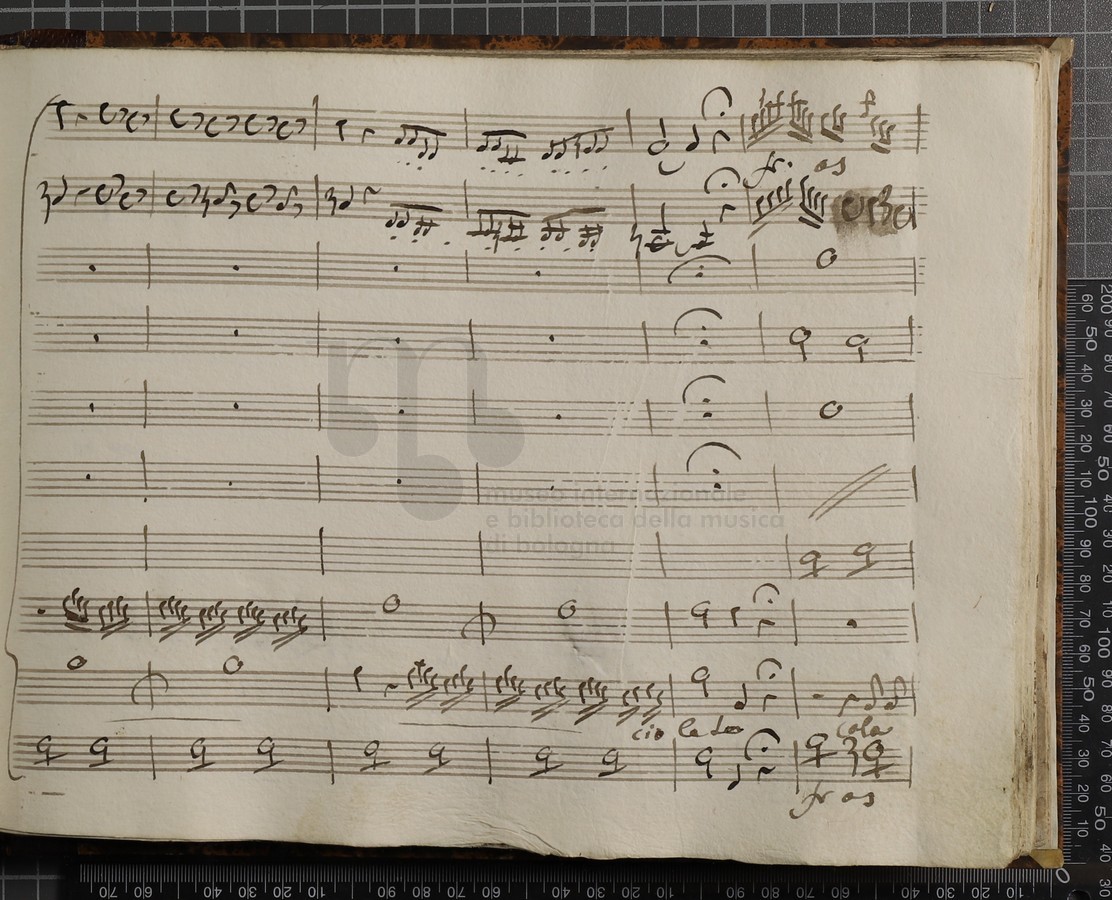 fr. as
museo internazionale
e biblioteca della musica
di bologna
cio la to cola
fr as